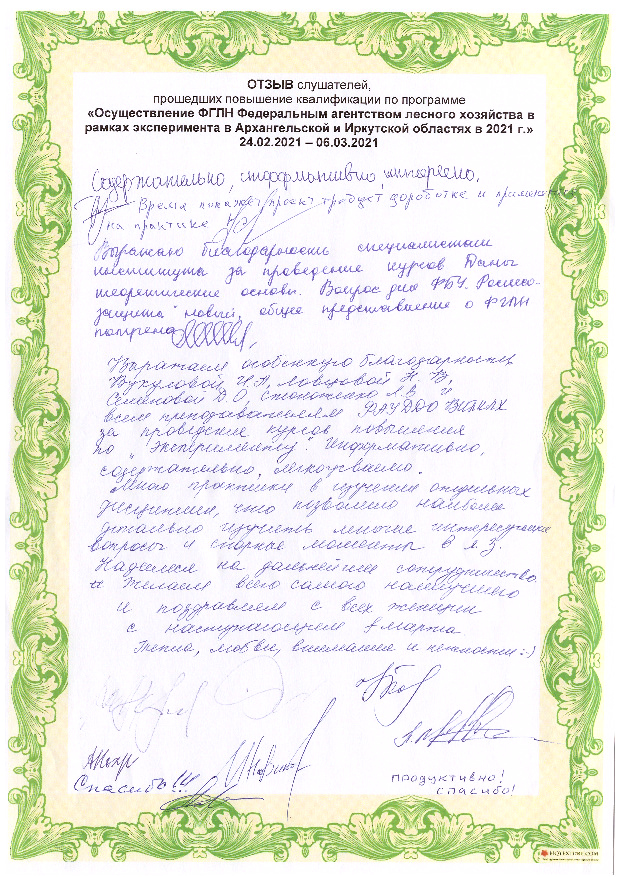 ОТЗЫВ слушателей,
прошедших повышение квалификации по программе
«Осуществление ФГЛН Федеральным агентством лесного хозяйства в
рамках эксперимента в Архангельской и Иркутской областях в 2021 г.»
24.02.2021 – 06.03.2021
Содержательно, информативно, интересно.
Время покажет, проект требует доработке и применения
на практике
Выражаю благодарность специалистам
института за проведение курсов. Даны
теоретические основы. Вопрос для ФБУ. Рослесо-
защита" новый, общее представление о ФГЛН
получено
Выражаем особенную благодарность
Вукуловой И.А, Н. В,
Семеновой Д.О, Л.В. и
всем преподавателям ФАУ ДПО ВИПКЛХ
за проведение курсов повышения
по „Эксперименту". Информативно,
содержательно, легкоусвояемо.
Много практики в изучении отдельных
дисциплин, что позволило наиболее
детально изучить многие интересующие
вопросы и спорные моменты в л.з.
Надеемся на дальнейшее сотрудничество
и Желаем всего самого наилучшего
и поздравляем с всех женщин
с наступающим 8 марта.
Тепла, любви, внимания и нежности :-)
Спасибо!!!
продуктивно!
спасибо!